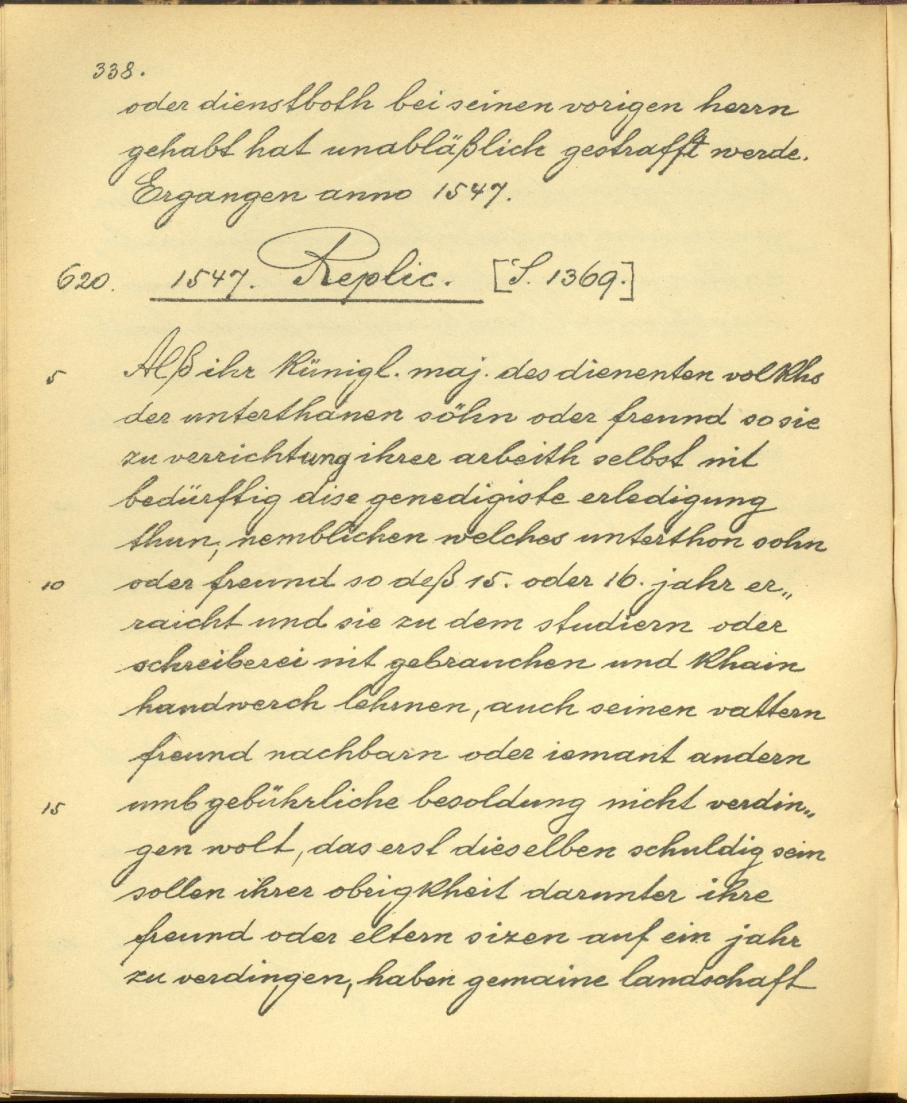 338.
oder dienstboth bei seinen vorigen herrn
gehabt hat unabläßlich gestrafft werde.
Ergangen anno 1547.
620. 1547. Replic. [S. 1369.]
5 Alß ihr künigl. maj. des dienenten volkhs
der unterthanen söhn oder freund so sie
zu verrichtung ihrer arbeith selbst nit
bedürftig dise genedigiste erledigung
thun, nemblichen welches unterthon sohn
10 oder freund so deß 15. oder 16. jahr er„
raicht und sie zu dem studiern oder
schreiberei nit gebrauchen und khain
handwerch lehrnen, auch seinen vattern
freund nachbarn oder iemant andern
15 umb gebührliche besoldung nicht verdin„
gen wolt, das erst dieselben schuldig sein
sollen ihrer obrigkheit darunter ihre
freund oder eltern sizen auf ein jahr
zu verdingen, haben gemaine landschaft